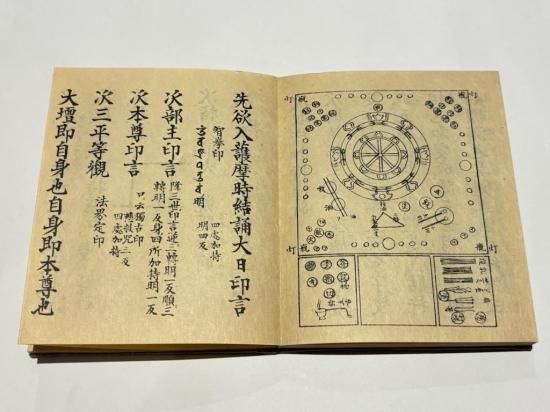 先欲入護摩時結誦大日印言
智拳印 四処加持
明四反
次部主印言 降三世印言逆三轉明一反順三
轉明一反身四所加持明一反
次本尊印言 口云獨古印
慈救咒三反
四処加持
次三平等觀 法界定印
大壇即自身也自身即本尊也
灯 瓶 瓶 灯
灯 瓶 瓶 灯